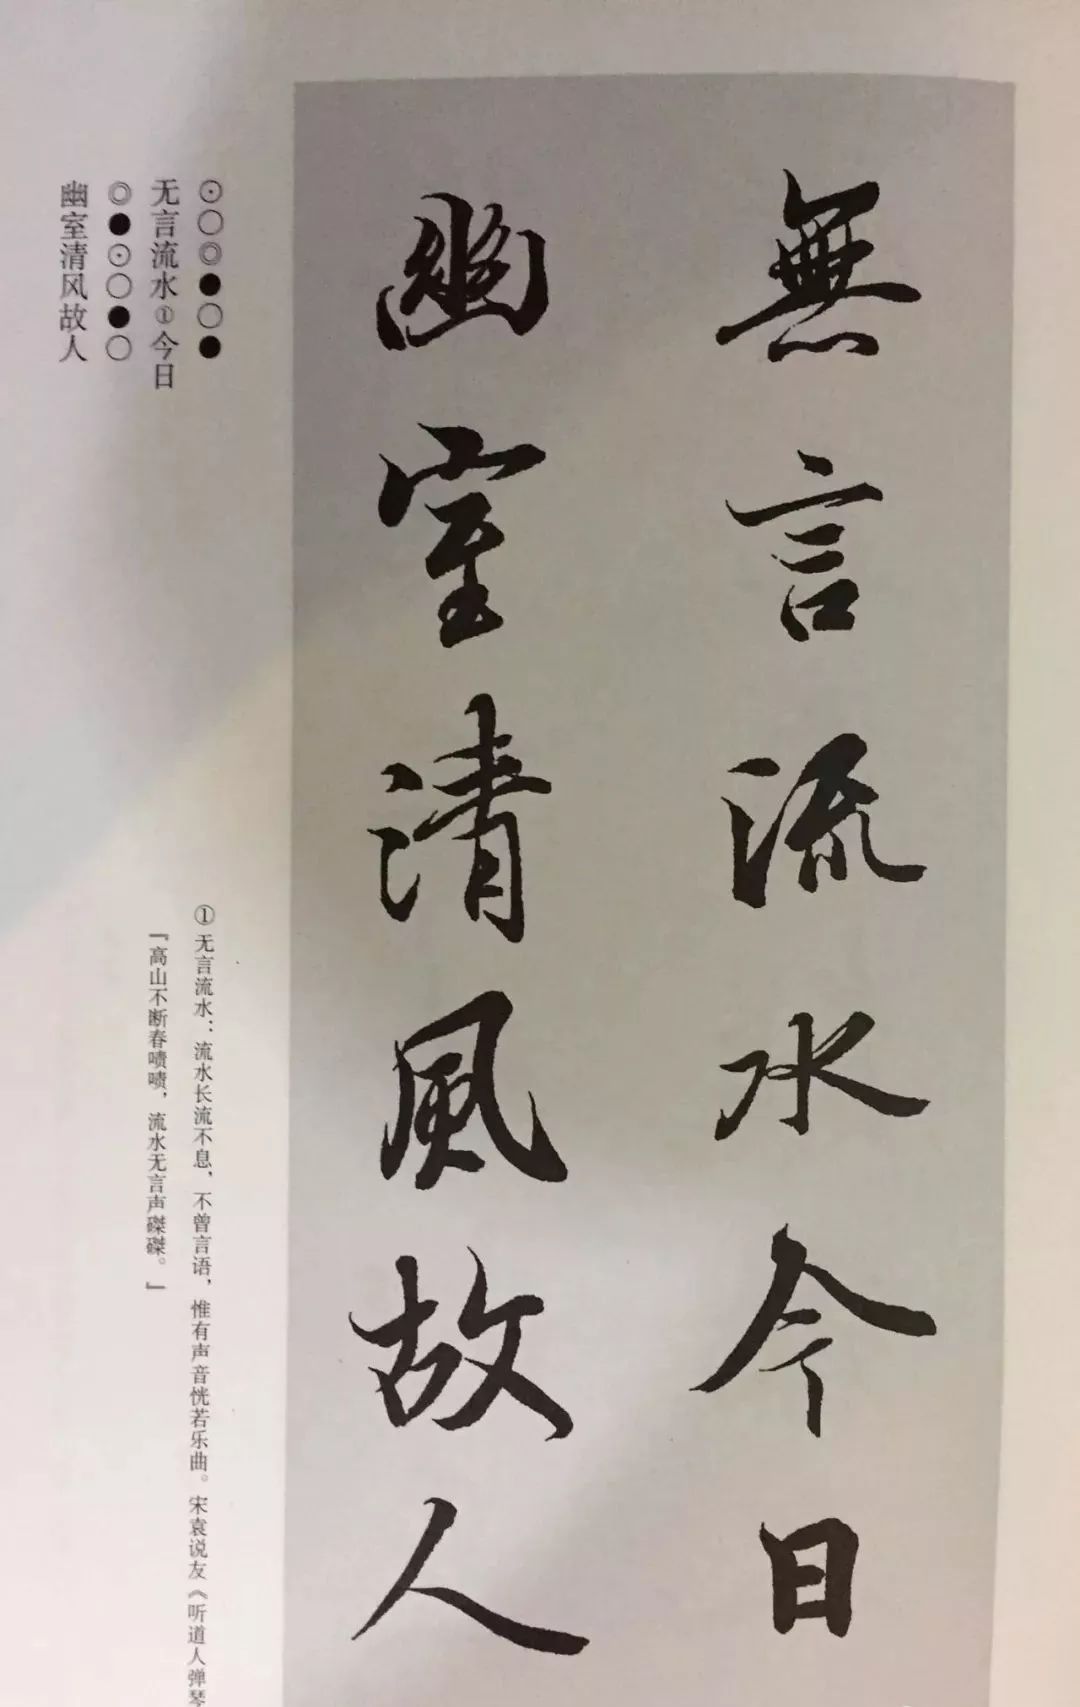 無言流水今日
幽室清風故人
⊙○◎●○●
无言流水①今日
◎●⊙○●○
幽室清风故人
①无言流水：流水长流不息，不曾言语，惟有声音恍若乐曲。宋袁说友《听道人弹琴
「高山不断春啧啧，流水无言声磔磔。」